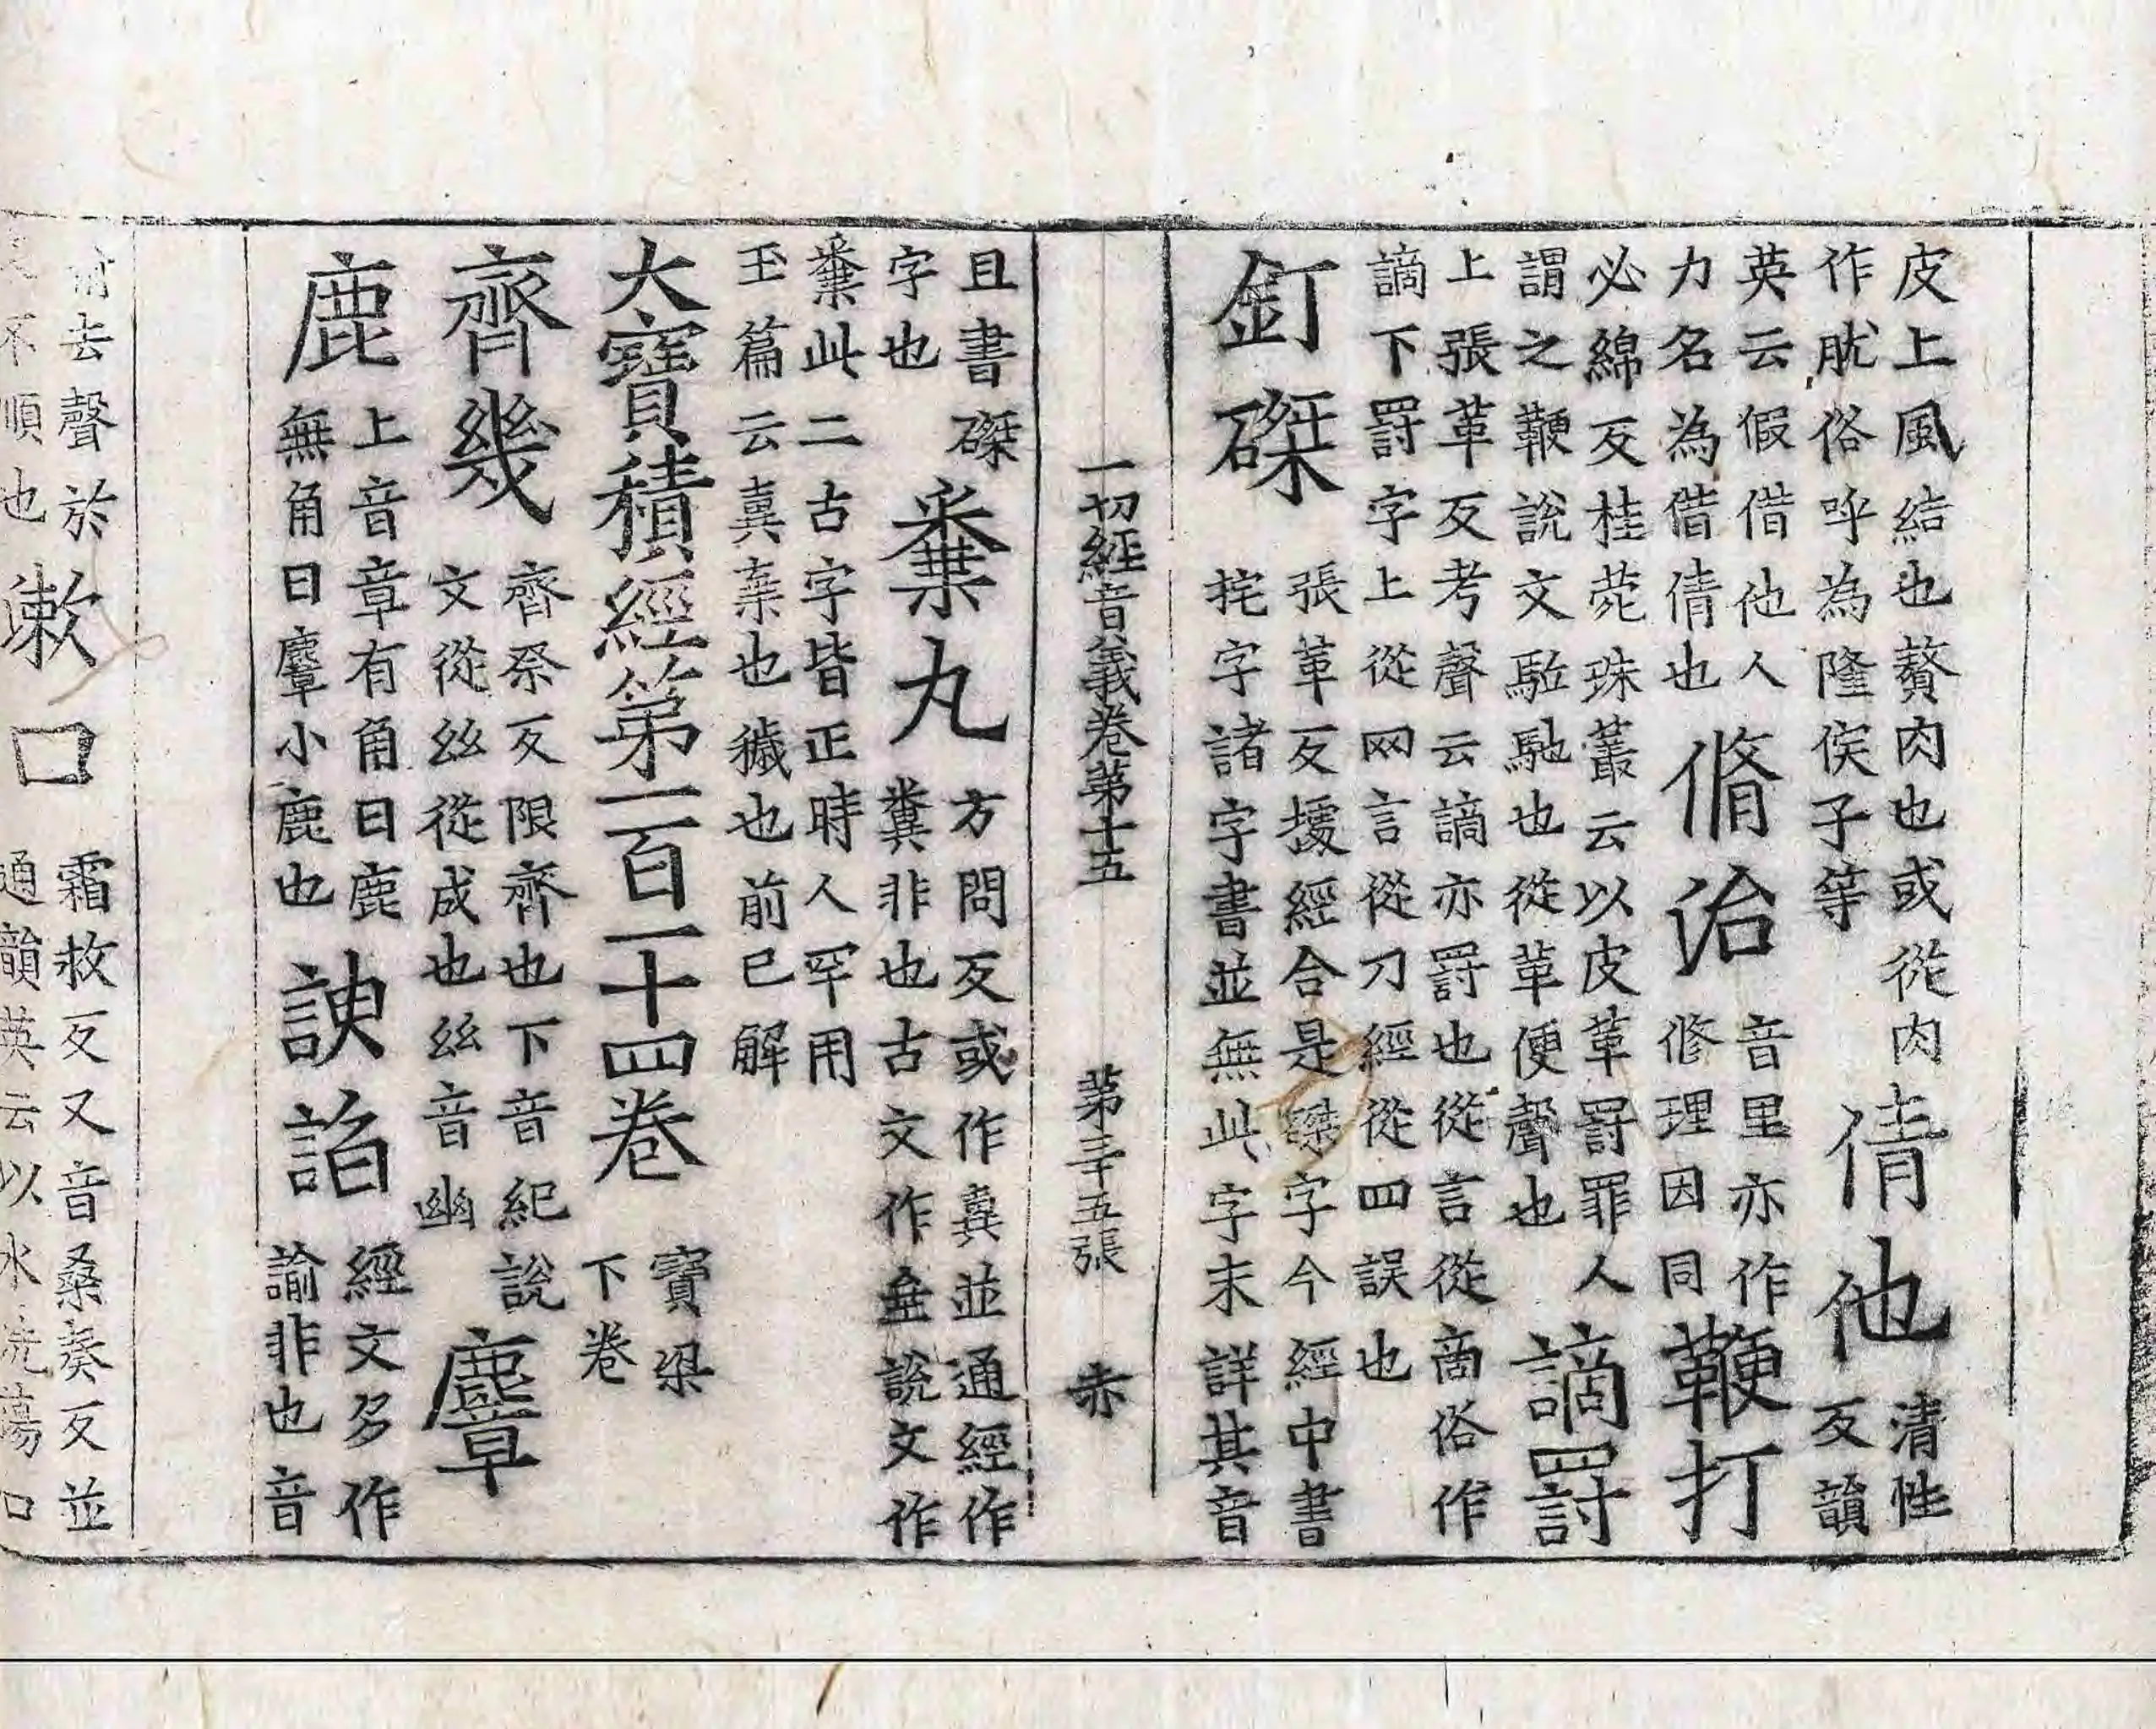 皮上風結也贅肉也或從肉作肬俗呼為隆侯子等倩他清性反韻
英云假借他人力名為借倩也脩治音里亦作修理因同鞭打
必綿反桂菀珠叢云以皮革罰罪人謂之鞭說文駈馳也從革便聲也謫罰
上張革反考聲云謫亦罰也從言從啇俗作謫下罰字上從网言從刀經從四誤也
釘磔張革反經合是磔字今經中書字諸字書並無此字未詳其音
一切經音義卷第十五 第三十五張 赤
且書磔字也糞丸方問反或作並通經作糞非也古文作說文作
此二古字皆正時人罕用玉篇云棄也穢也前已解
大寶積經第一百一十四卷寶梁下卷
齊幾齊祭反限齊也下音紀說文從𢆶從成也𢆶音幽麞
鹿上音章有角曰鹿無角曰麞小鹿也諛諂經文多作諭非也音
去聲於不順也漱口霜救反又音桑奏反並通韻英云以水洗蕩口